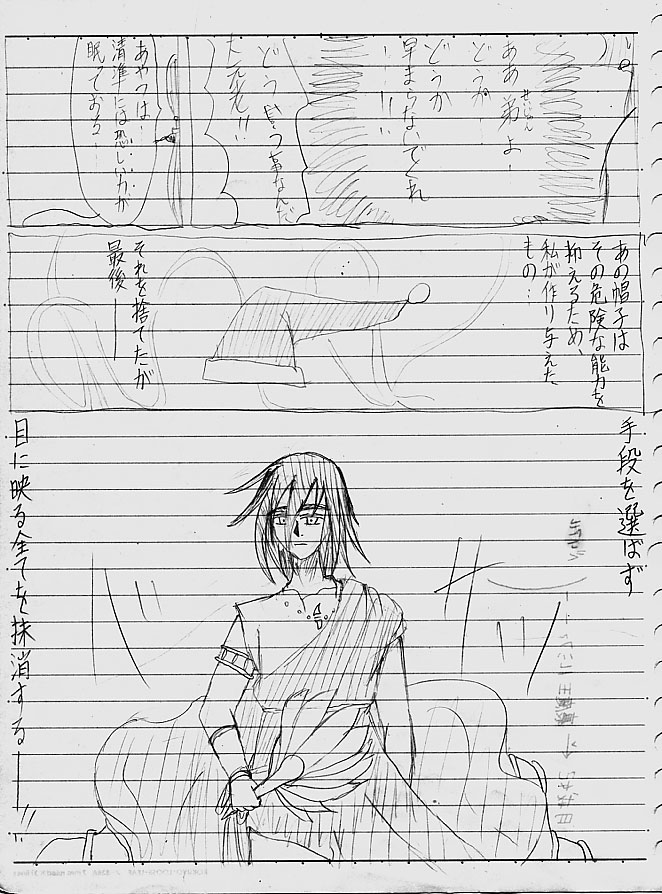 ああ弟よ…
せいじゅん
どうか…
どうか
早まらないでくれ
!!
どう言う事なんだ
大元老!!
あやつは…
清準には恐しい力が
眠っておる…
あの帽子は
その危険な能力を
抑えるため、
私が作り与えた
もの…
それを捨てたが
最後――
手段を選ばず
目に映る全てを抹消する――!!